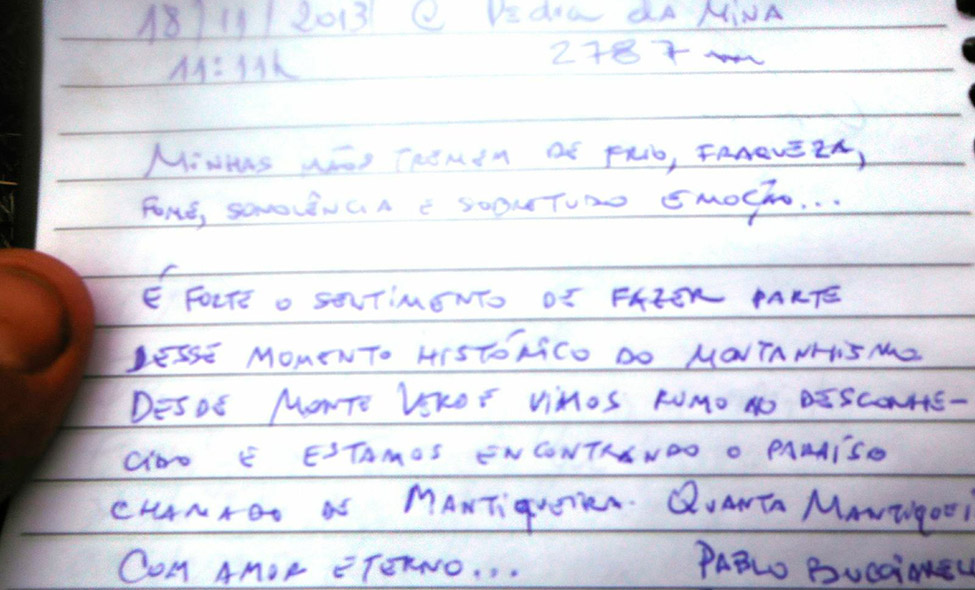 18/11/2013 @ Pedra da Mina
11:11h 2787 m
Minhas mãos tremem de frio, fraqueza,
fome, sonolência e sobretudo emoção...
É forte o sentimento de fazer parte
desse momento histórico do montanhismo
Desde Monte Verde vimos rumo ao desconhe-
cido e estamos encontrando o paraíso
chamado de Mantiqueira. Quanta Mantiquei
Com amor eterno... Pablo Bucciarell